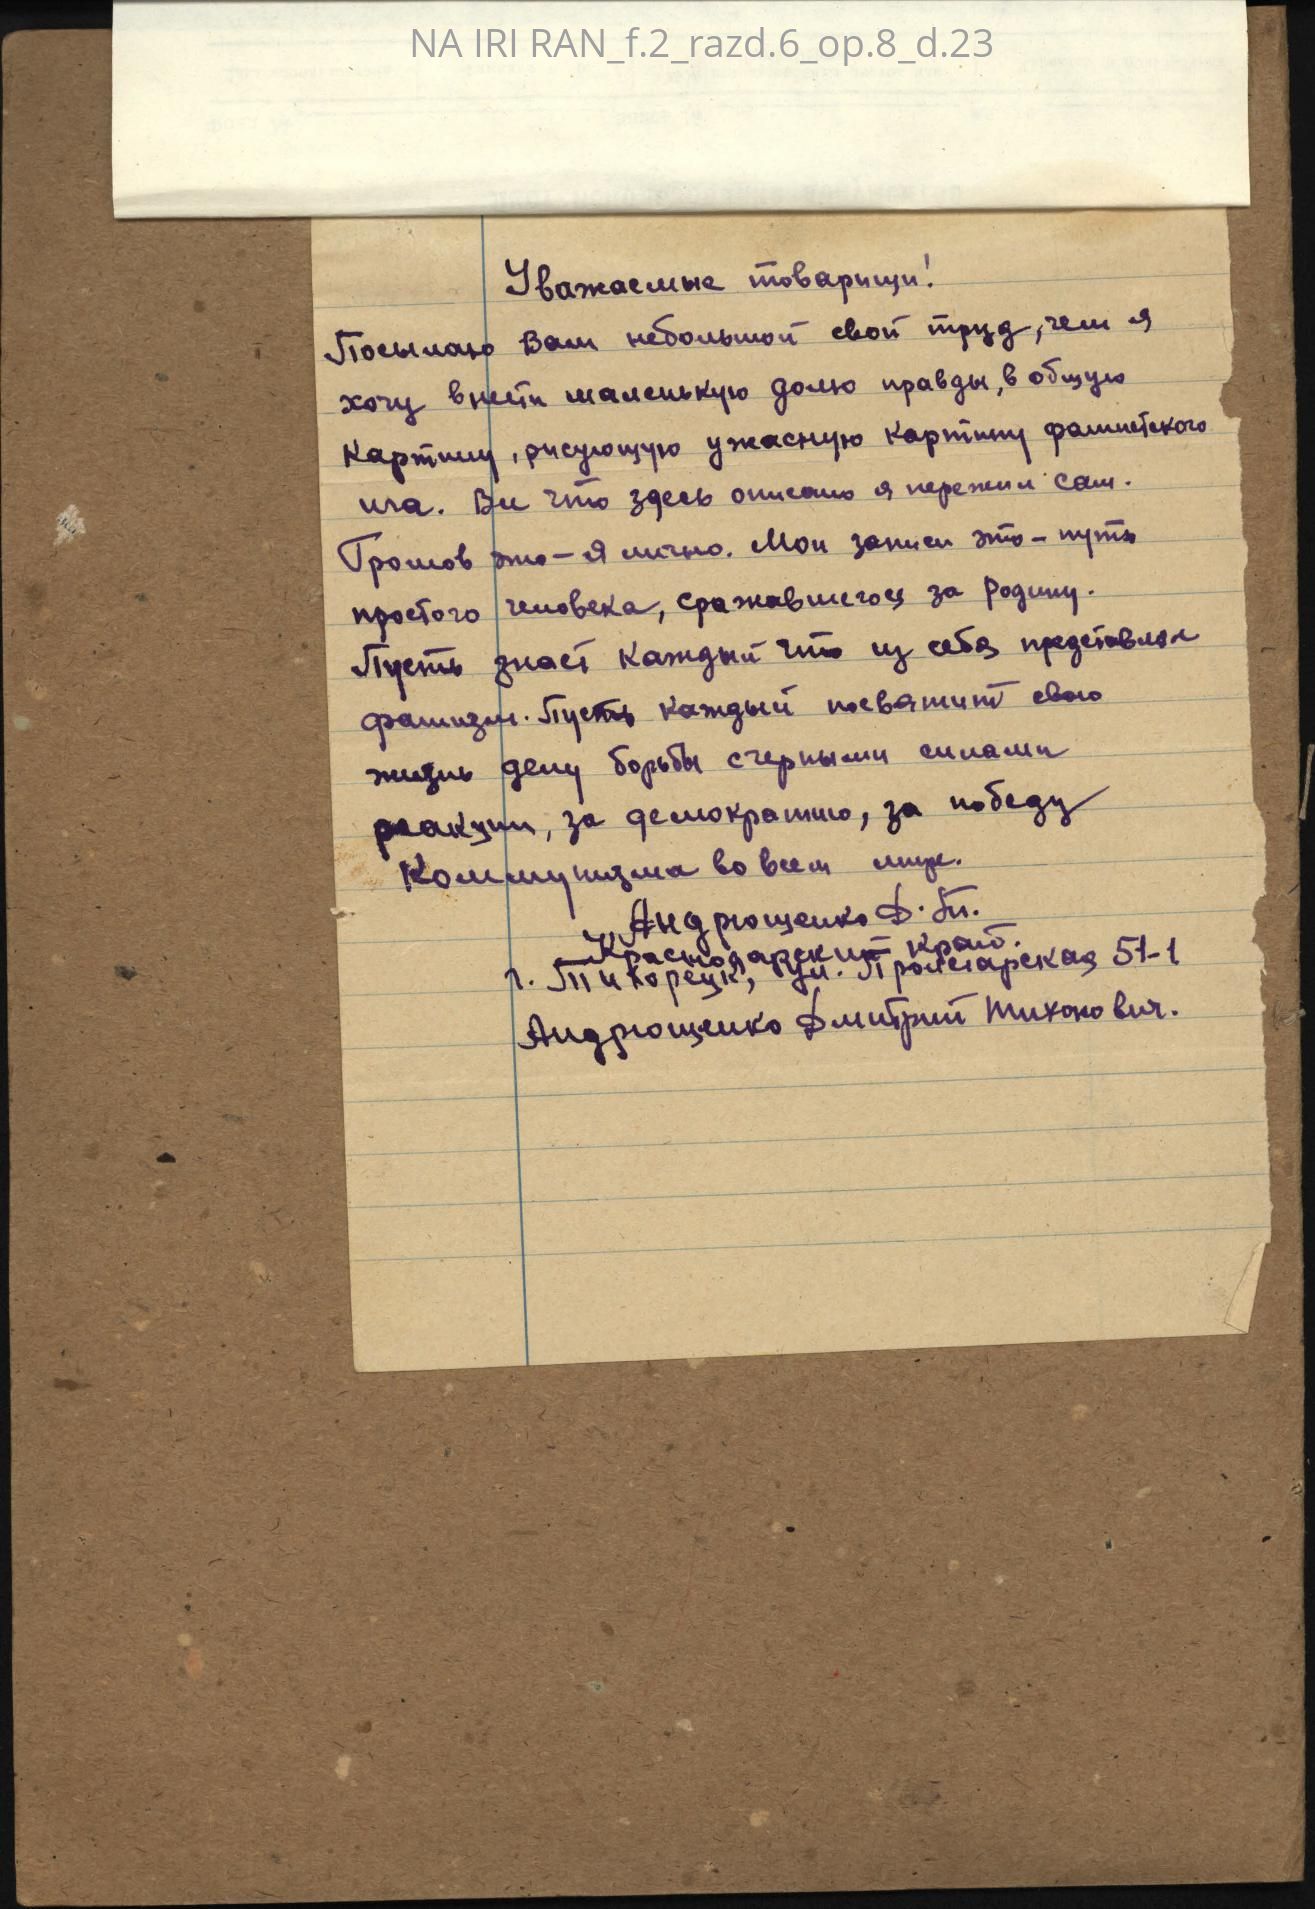 NA IRI RAN_f.2_razd.6_op.8_d.23
Уважаемые товарищи!
Посылаю Вам небольшой свой труд, чем я
хочу внести маленькую долю правды, в общую
картину, рисующую ужасную картину фашистского
ига. Все что здесь описано я пережил сам.
Громов это – я лично. Мои записи это – путь
простого человека, сражавшегося за Родину.
Пусть знает каждый что из себя представлял
фашизм. Пусть каждый посвятит свою
жизнь делу борьбы с черными силами
реакции, за демократию, за победу
Коммунизма во всем мире.
Андрющенко Д. Т.
Краснодарский край.
г. Тихорецк, ул. Пролетарская 51-1
Андрющенко Дмитрий Тихонович.